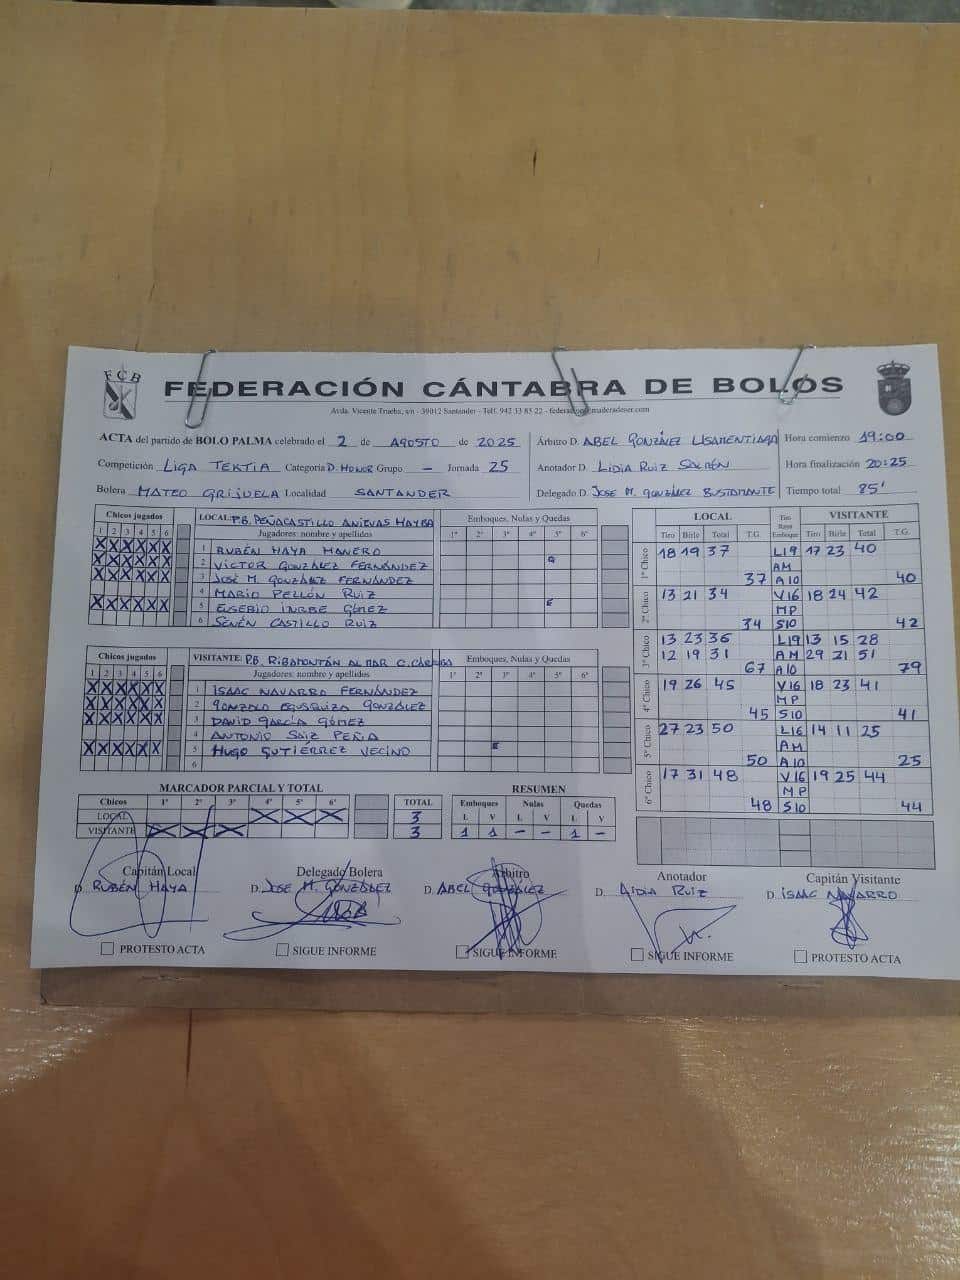 FCB
FEDERACIÓN CÁNTABRA DE BOLOS
Avda. Vicente Trueba, s/n - 39012 Santander - Telf. 942 33 85 22 -
ACTA del partido de BOLO PALMA celebrado el 2 de AGOSTO de 2025
Competición LIGA TEKTIA Categoría D. HONOR Grupo - Jornada 25
Bolera MATEO GRIJUELA Localidad SANTANDER
Árbitro D. ABEL GONZÁLEZ LISAMENTIAGA
Anotador D. LIDIA RUIZ
Delegado D. JOSE M. GONZÁLEZ BUSTAMANTE
Hora comienzo 19:00
Hora finalización 20:25
Tiempo total 85'
Chicos jugados
1 2 3 4 5 6
X X X X X X
X X X X X X
X X X X X X
X X X X X X
LOCAL: P.B. PEÑACASTILLO ANIEVAS MAYBA
Jugadores: nombre y apellidos
1 RUBÉN HAYA
2 VÍCTOR GONZÁLEZ FERNÁNDEZ
3 JOSÉ M. GONZÁLEZ FERNÁNDEZ
4 MARIO PELLÓN RUIZ
5 EUSEBIO GÓMEZ
6 SENÉN CASTILLO RUIZ
Emboques, Nulas y Quedas
1º 2º 3º 4º 5º 6º
Q
E
Chicos jugados
1 2 3 4 5 6
X X X X X X
X X X X X X
X X X X X X
X X X X X X
VISITANTE: P.B. RIBAMONTÁN AL MAR
Jugadores: nombre y apellidos
1 ISAAC NAVARRO FERNÁNDEZ
2 GONZALO EGUSQUIZA GONZÁLEZ
3 DAVID GARCÍA GÓMEZ
4 ANTONIO SAIZ PEÑA
5 HUGO GUTIÉRREZ VECINO
6
Emboques, Nulas y Quedas
1º 2º 3º 4º 5º 6º
E
MARCADOR PARCIAL Y TOTAL
Chicos 1º 2º 3º 4º 5º 6º TOTAL
LOCAL X X X 3
VISITANTE X X X 3
RESUMEN
Emboques Nulas Quedas
L V L V L V
1 1 - - 1 -
LOCAL Tiro Raya Emboque VISITANTE
Tiro Birle Total T.G. Tiro Birle Total T.G.
1º Chico
18 19 37 L19 17 23 40
AM
37 A10 40
2º Chico
13 21 34 V16 18 24 42
MP
34 S10 42
3º Chico
13 23 36 L19 13 15 28
12 19 31 AM 29 21 51
67 A10 79
4º Chico
19 26 45 V16 18 23 41
MP
45 S10 41
5º Chico
27 23 50 L16 14 11 25
AM
50 A10 25
6º Chico
17 31 48 V16 19 25 44
MP
48 S10 44
Capitán Local
D. RUBÉN HAYA
Delegado Bolera
D. JOSE M. GONZÁLEZ
Árbitro
D. ABEL GONZÁLEZ
Anotador
D. LIDIA RUIZ
Capitán Visitante
D. ISAAC NAVARRO
PROTESTO ACTA
SIGUE INFORME
SIGUE INFORME
SIGUE INFORME
PROTESTO ACTA